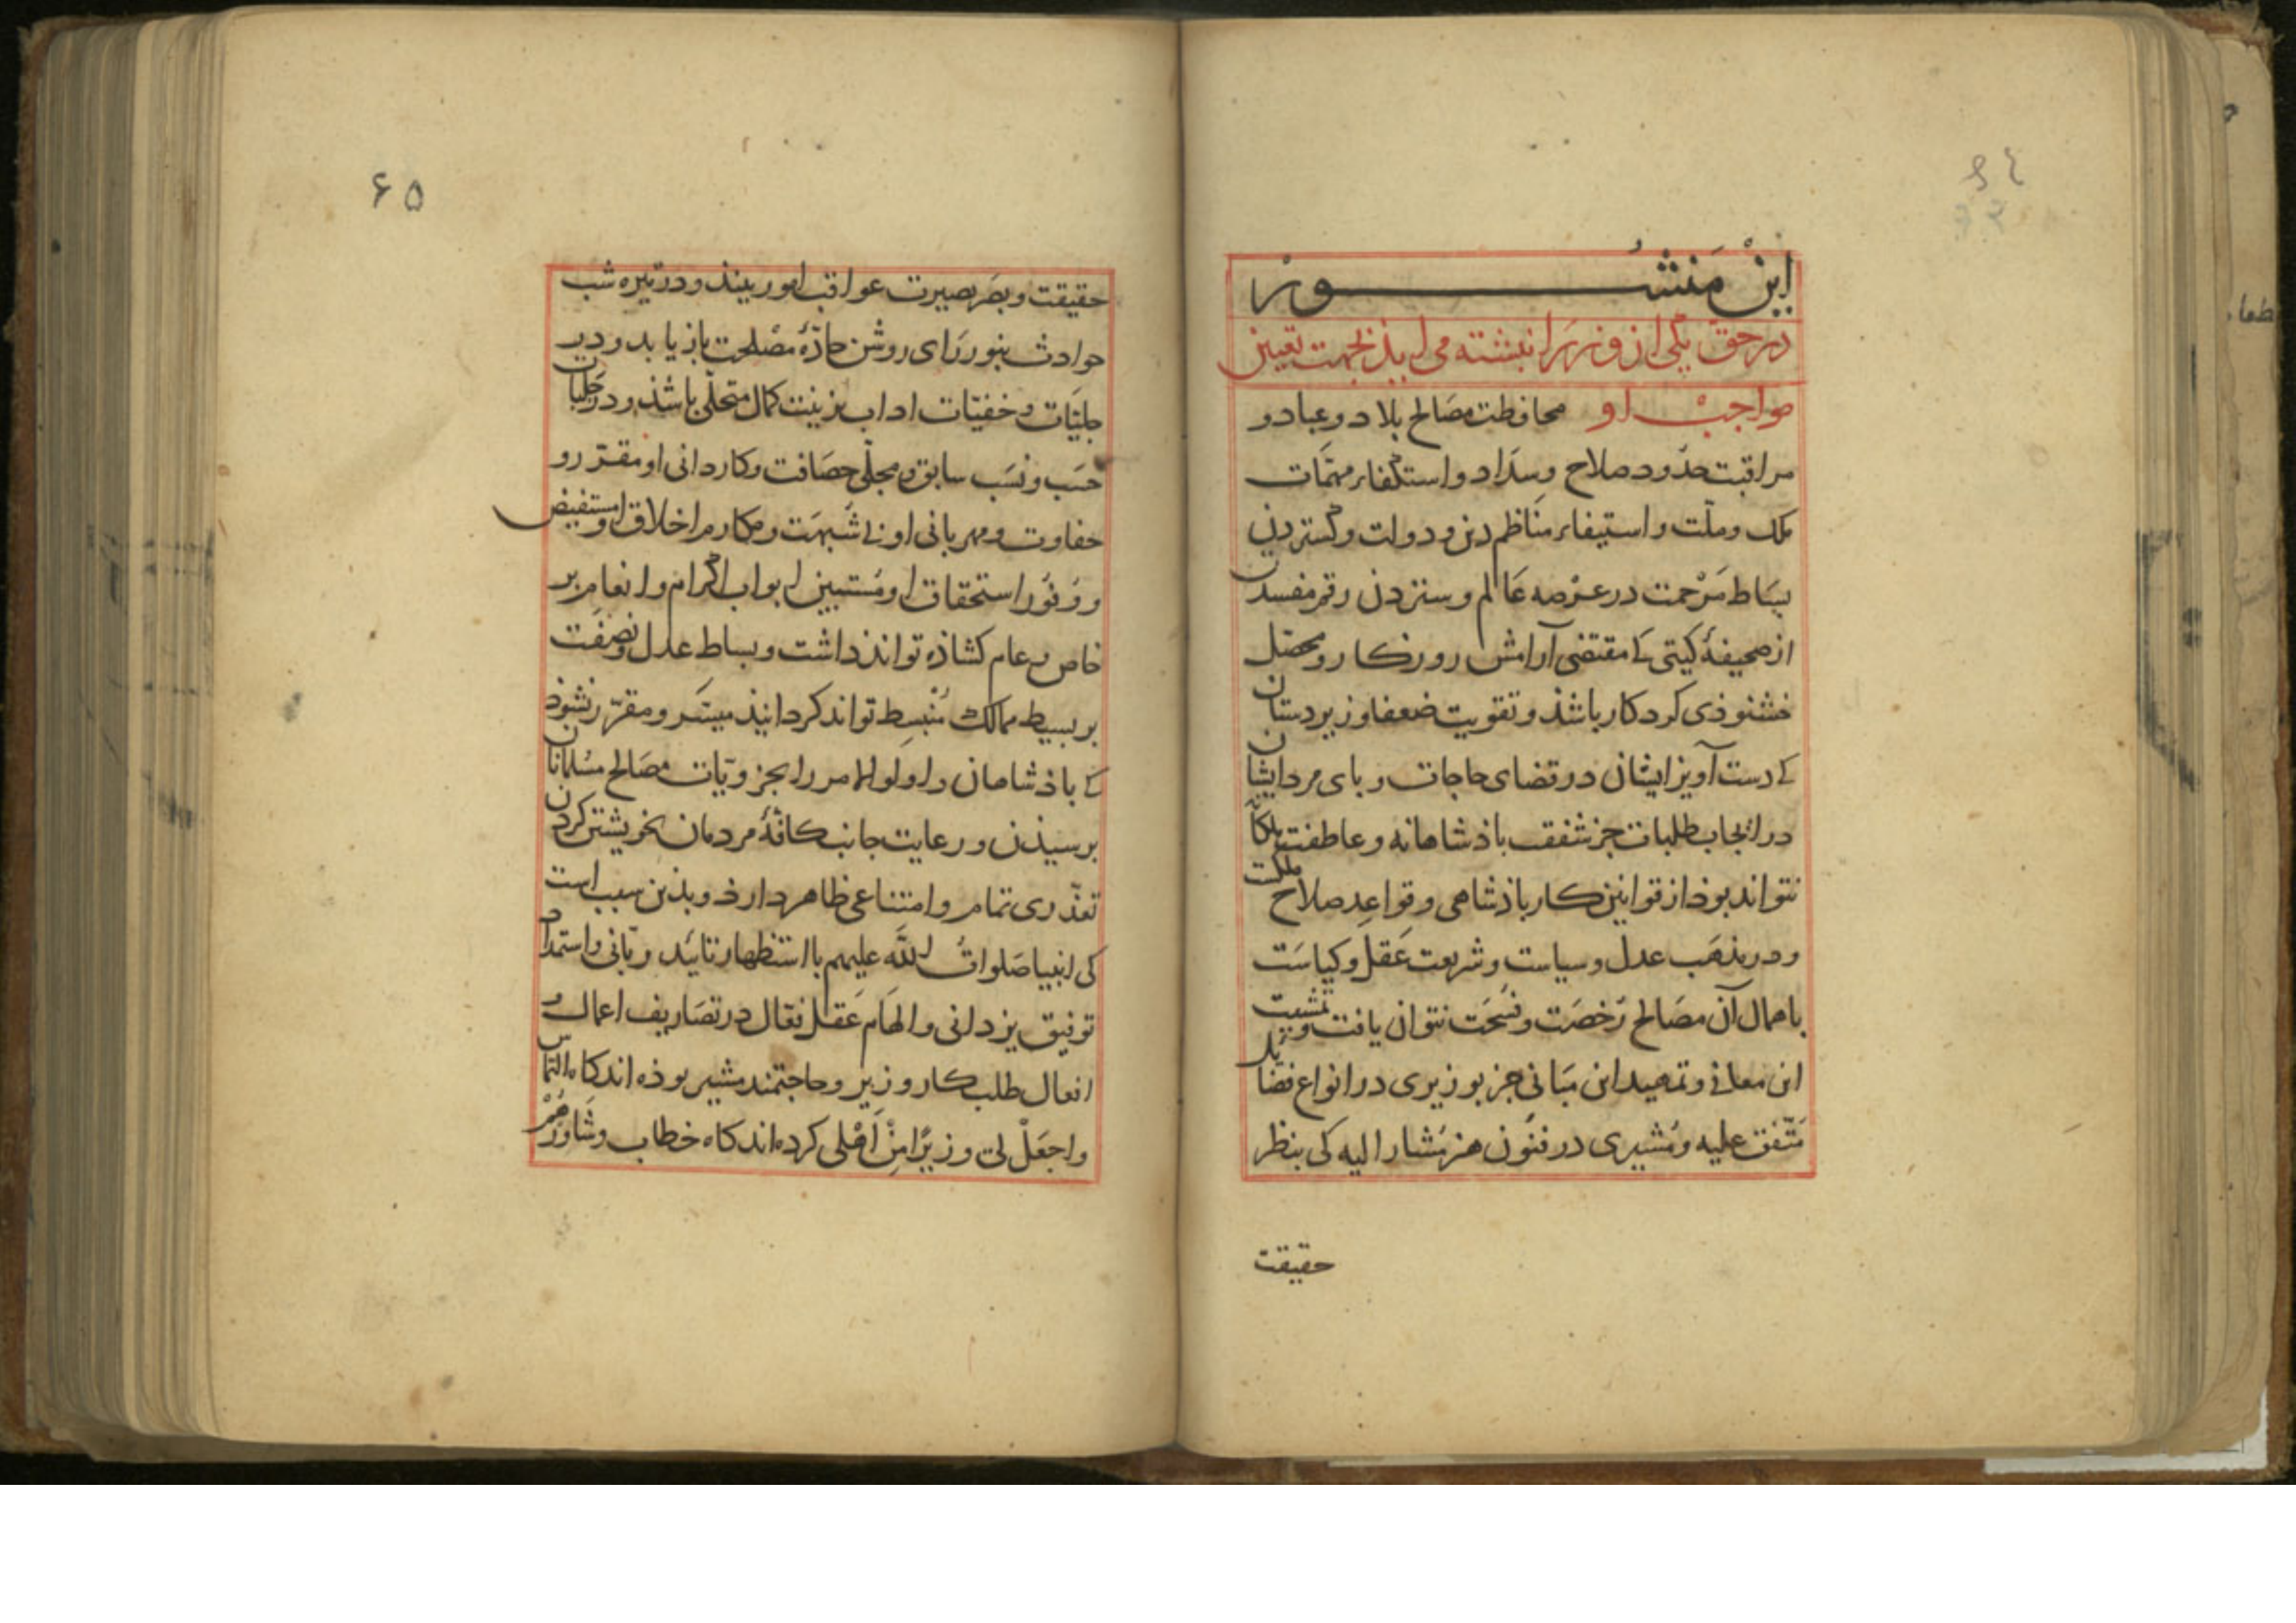 این منشور
در حق یکی از وزرا نبشته می اید بجهت تعیین
مواجب او محافظت مصالح بلاد و عباد و
مراقبت حدود صلاح و سداد و استکفاء مهمّات
ملک و ملّت و استیفاء مناظم دین و دولت و گستردن
بساط مَرْحمت در عرْصه عَالم و ستردن رقم مفسدت
از صحیفهٔ کیتی کی مقتضی آرامش روزکار و محصّل
خشنوذی کردکار باشذ و تقویت ضعفا و زیردستان
کی دست آویز ایشان در قضای حاجات و بای مرد ایشان
در انجاب طلبات جز شفقت باذشاهانه و عاطفت ملکانه
نتواند بوذ از قوانین کار باذشاهی و قواعد صلاح مملکت
و در مذهَب عدل و سیاست و شریعت عَقل و کیاسَت
باهمال آن مصَالح رُخصَت و فسُحَت نتوان یافت و تمشیت
این معانی و تمهید این مبَانی جز بوزیری در انواع فضایل
متّفق علیه و مُشیری در فنُون هنر مُشار الیه کی بنظر
حقیقت
۶۵
حقیقت و بصَر بصیرت عواقب امور بینذ و در تیره شب
حوادث بنور رَای روشن جادّهٔ مصْلحت بازیابد و در
جلیّات و خفیّات اداب بزینت کمال متحلّی باشذ و در حَلَبات
حسَب و نسَب سابق و مجلّی حصَافت و کاردانی او مقرّر و
حفاوت و مهربانی او بی شبهَت و مکارم اخلاق او مستفیض
و وُفوُر استحقاق او مُستبین ابواب اکرام و انعام بر
خاص و عام کشاذه تواند داشت و بساط عدل و نصَفَت
بر بسیط ممالک مُنْبسِط تواند کردانیذ میسَّر و مقرّر نشوذ
کی باذشاهان و اولو الامر را بجزویّات مصَالح مسُلمانان
برسیذن و رعایت جانب کافّهٔ مردمان بخویشتن کردن
تعذّری تمام و امتناعی ظاهر دارذ و بذین سبب است
کی انبیا صَلواتُ الله علیهم با استظهار تائید ربّانی و استمداد
توفیق یزدانی و الهَام عَقل فعّال در تصَاریف اعمال و
افعال طلب کار وزیر و حاجتمند مشیر بوذه اند کاه التماس
واجعَلْ لی وزیرًا مِنْ اَهْلی کرده اند کاه خطاب وشَاورْهُمْ